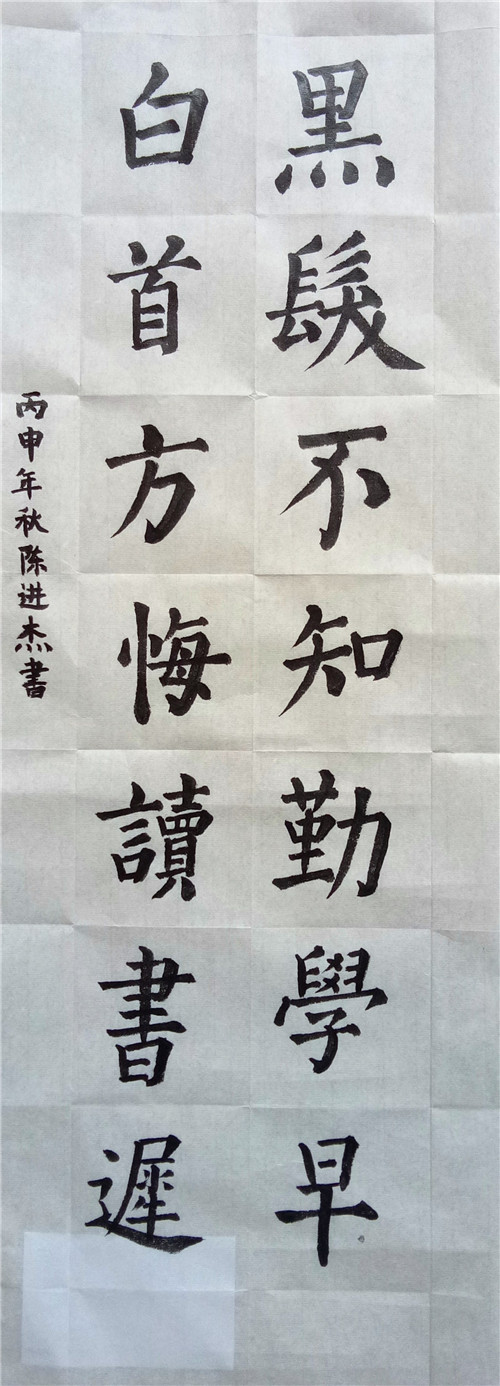 黑髮不知勤學早
白首方悔讀書遲
丙申年秋陈进杰書